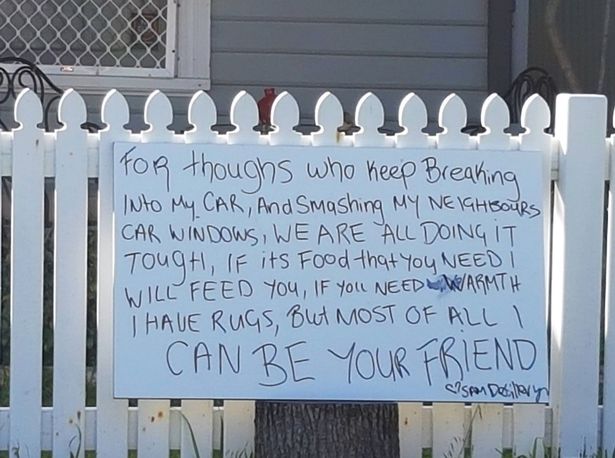 FOR thoughs who keep Breaking
INto My CAR, And Smashing MY NEIGHBOURS
CAR WINDOWS, WE ARE ALL DOING IT
TOUGH, IF its FOOD that YOU NEED I
WILL FEED YOU, IF YOU NEED WARMTH
I HAVE RUGS, BUT MOST OF ALL I
CAN BE YOUR FRIEND
♡SAM